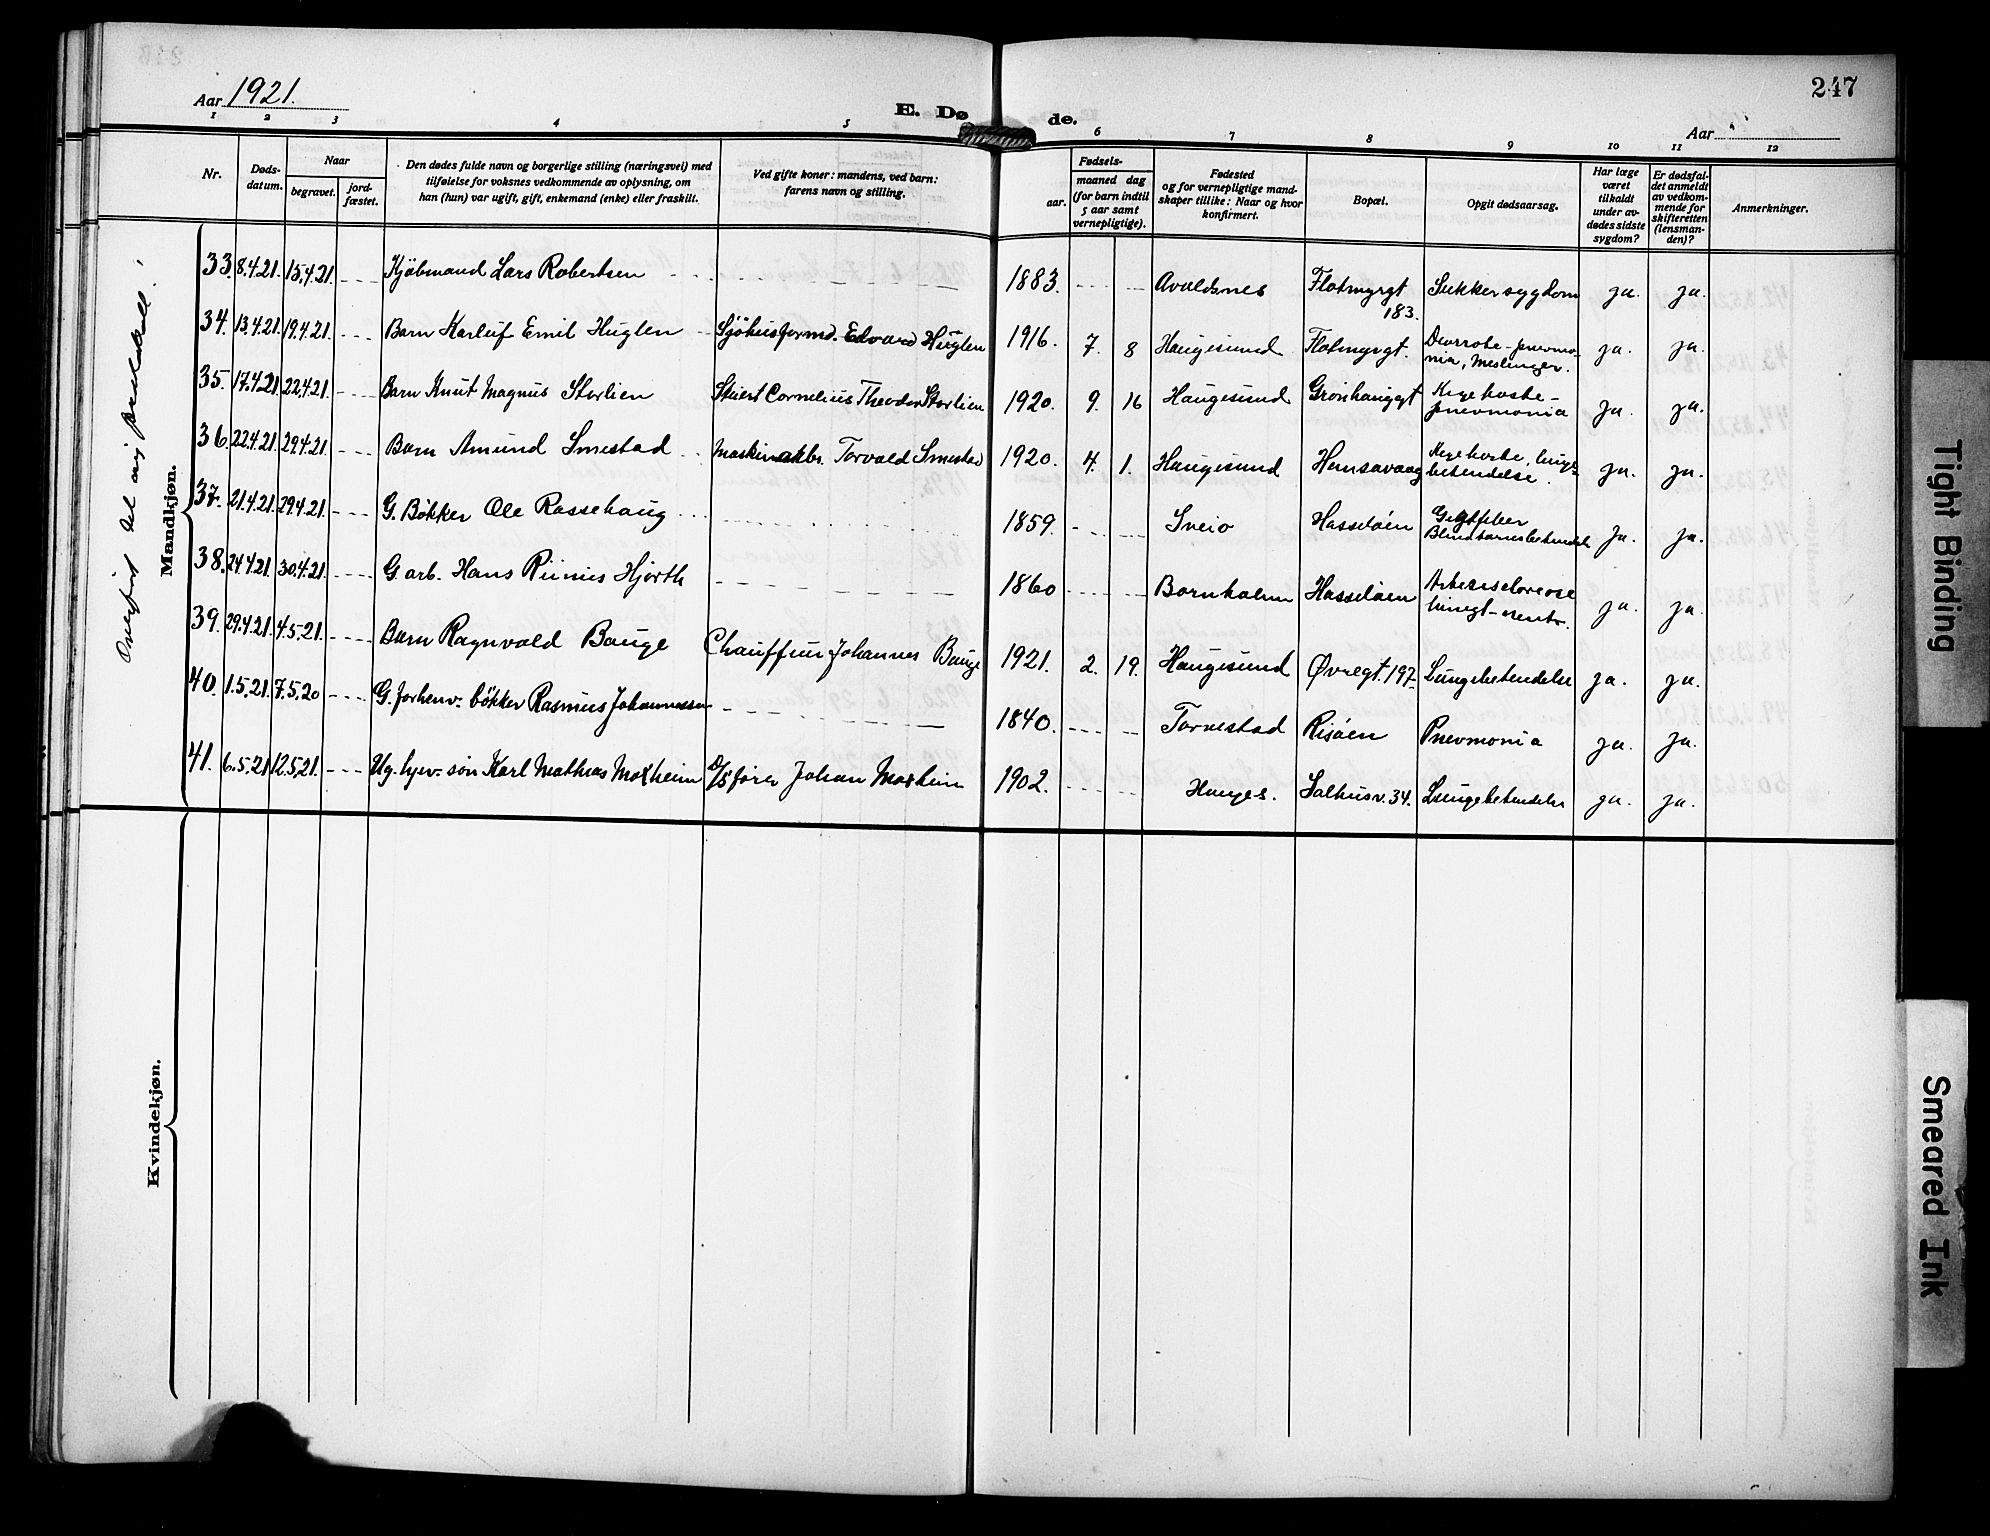 Aar 1921.
E. Døde.
247
Aar "
1 2 3 4 5 6 7 8 9 10 11 12
Nr.
Dødsdatum.
Naar
begravet.
jordfæstet.
Den dødes fulde navn og borgerlige stilling (næringsvei) med
tilføielse for voksnes vedkommende av oplysning, om
han (hun) var ugift, gift, enkemand (enke) eller fraskilt.
Ved gifte koner: mandens, ved barn:
farens navn og stilling.
Fødsels-
aar.
maaned dag
(for barn indtil
5 aar samt
vernepligtige).
Fødested
og for vernepligtige mand-
skaper tillike: Naar og hvor
konfirmert.
Bopæl.
Opgit dødsaarsag.
Har læge
været
tilkaldt
under av-
dødes sidste
sygdom?
Er dødsfal-
det anmeldt
av vedkom-
mende for
skifteretten
(lensman-
den)?
Anmerkninger.
Overført til ny protokoll!
Mandkjøn.
33. 8.4.21. 15.4.21. Kjøbmand Lars Robertsen 1883. Avaldsnes Flotmyrgt 183. Sukkersygdom ja. ja.
34. 13.4.21. 19.4.21. Barn Karluf Emil Huglen Sjøhusformd. Edvard Huglen 1916. 7. 8 Haugesund Flotmyrgt. pnevmo-
nia, Meslinger. ja. ja.
35. 17.4.21 22.4.21 Barn Knut Magnus Storlien Stuert Cornelius Theodor Storlien 1920. 9. 16 Haugesund Grønhauggt Kigehoste-
pnevmonia ja. ja.
36. 22.4.21. 29.4.21. Barn Amund Smestad Torvald Smestad 1920. 4. 1. Haugesund Hemsavaag Kigehoste, lunge-
betendelse. ja. ja.
37. 21.4.21 29.4.21. G. Bøkker Ole Rossehaug 1859. Sveio Hasseløen Gigtfeber
Blindtarmsbetendelse ja. ja.
38. 24.4.21. 30.4.21. G. arb. Hans Hjorth 1860 Bornholm Hasseløen ja. ja.
39. 29.4.21. 4.5.21. Barn Ragnvald Bauge Chauffeur Johannes Bauge 1921. 2. 19. Haugesund Øvregt. 197 Lungebetendelse ja. ja.
40. 1.5.21. 7.5.20 G. forhenv. bøkker Rasmus Johannessen 1840. Torvestad Risøen Pnevmonia ja. ja.
41. 6.5.21 12.5.21. Ug. hjev. søn Karl Mathias Moxheim D/S fører Johan Moxheim 1902. Hauges. Salhusv. 34. Lungebetendelse ja. ja.
Kvindekjøn.
Tight Binding
Smeared Ink